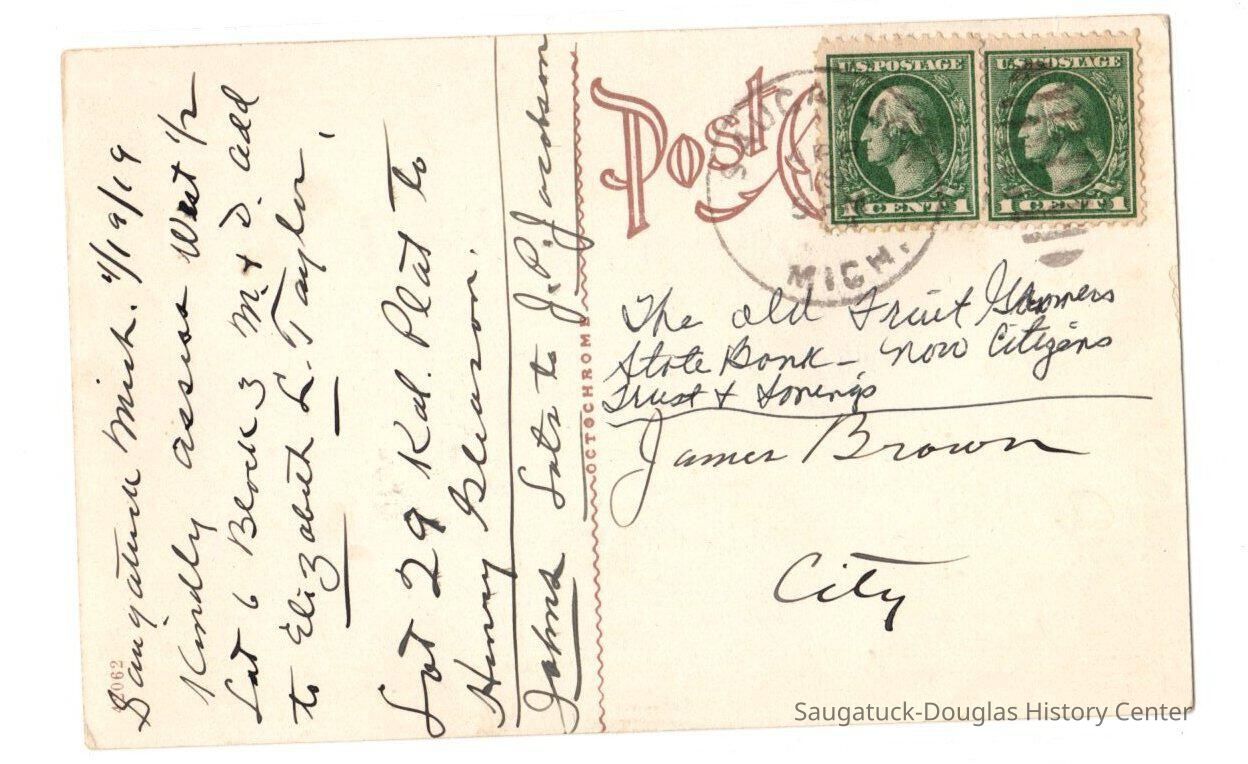 Saugatuck Mich. 4/19/19
Kindly assess West 1/2
Lot 6 Block 3 M. + D. add
to Elizabeth L. Taylor,
Lot 29 Kal. Plat to
Henry Gleason.
Johns Lots to J. P. Jackson
42062
OCTOCHROME
Post C
U.S. POSTAGE
1 CENT 1
U.S. POSTAGE
1 CENT 1
SAUGA
MICH.
The old Fruit Growers
State Bank – now Citizens
Trust +
James Brown
City
Saugatuck-Douglas History Center